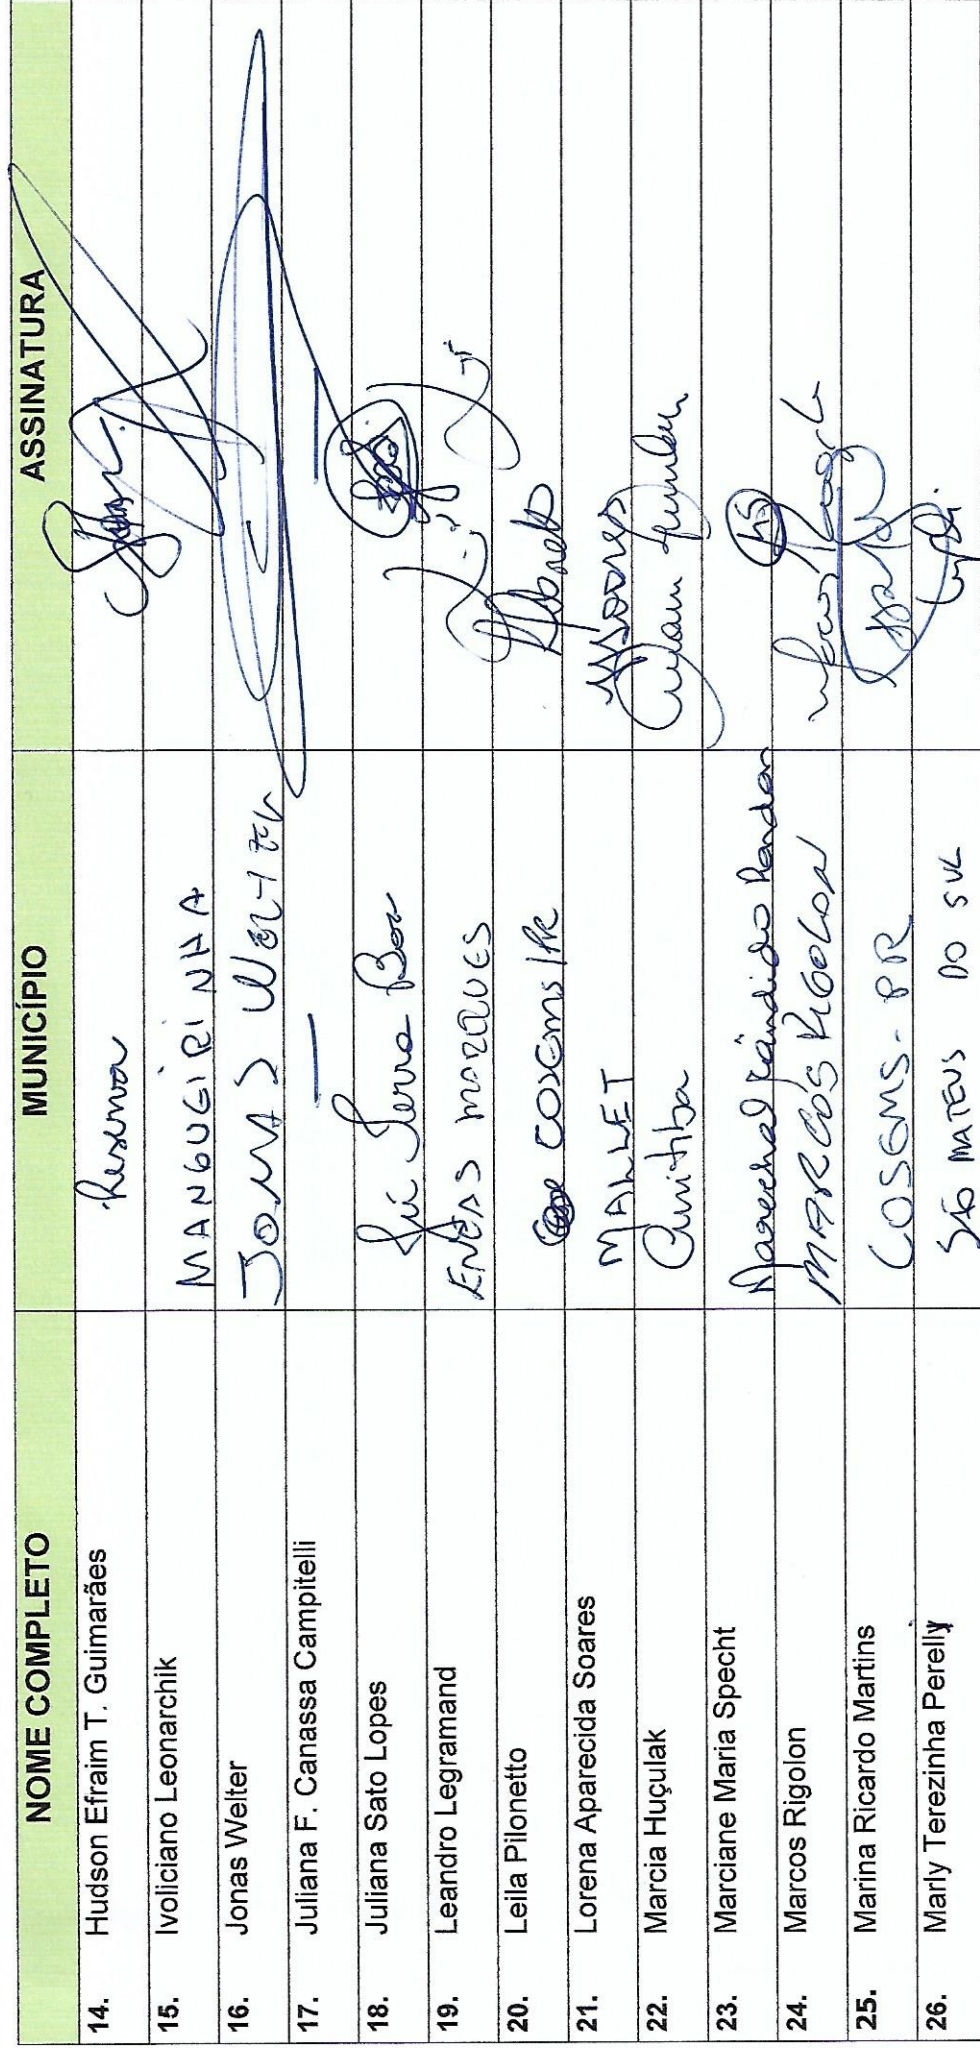 NOME COMPLETO MUNICÍPIO ASSINATURA
14. Hudson Efraim T. Guimarães Reserva
15. Ivoliciano Leonarchik MANGUGIRINHA
16. Jonas Welter JONAS WELTER
17. Juliana F. Canassa Campitelli — —
18. Juliana Sato Lopes Terra Boa
19. Leandro Legramand ENÉAS MARQUES
20. Leila Pilonetto COSEMS/PR
21. Lorena Aparecida Soares MALLET
22. Marcia Huçulak Curitiba
23. Marciane Maria Specht Marechal Cândido Rondon
24. Marcos Rigolon MARCOS RIGOLON
25. Marina Ricardo Martins COSEMS-PR
26. Marly Terezinha Perelly SÃO MATEUS DO SUL